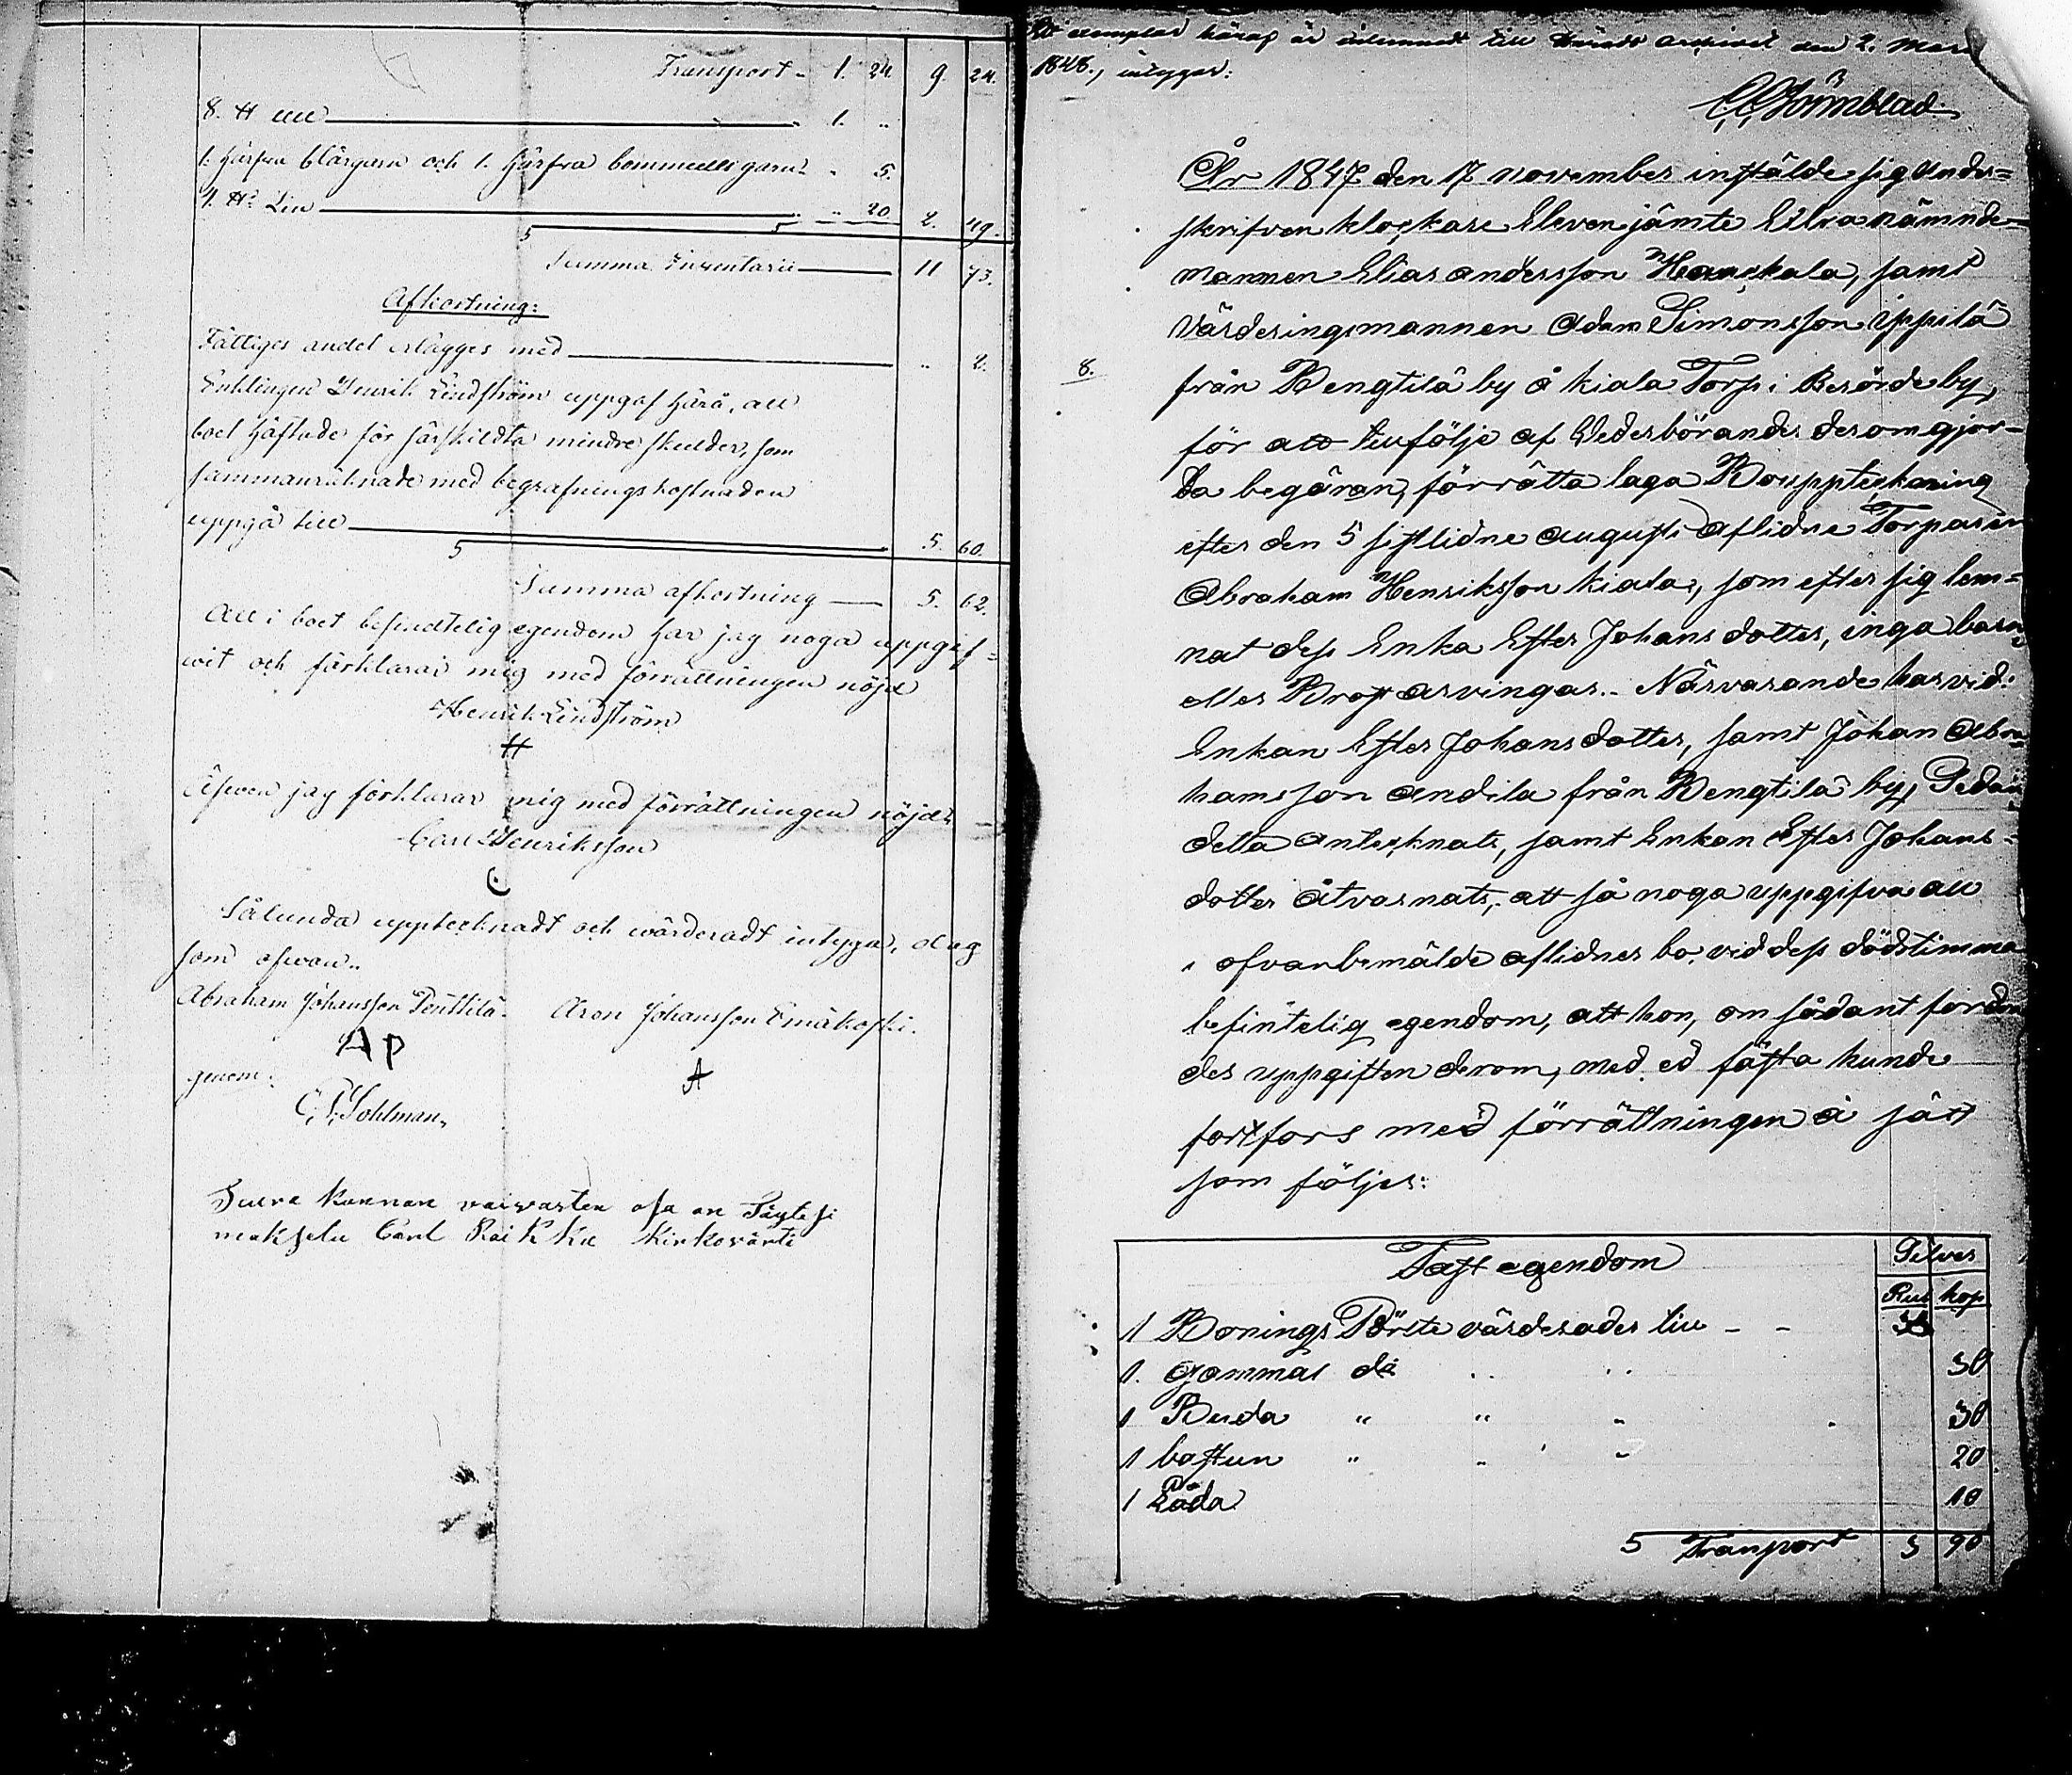 Transport - 1. 24. 9. 24.
8. ℔ ull 1. ..
1. härfva blårgarn och 1. härfva bommullsgarn .. 5.
4. ℔ Lin .. 20 2. 49.
Summa Inventarii 11 73.
Afkortning:
Fattiges andel erlägges med .. 2.
Enklingen Henrik Lindström uppgaf härå, att
boet häftade för särskildta mindre skulder, som
sammanräknade med begrafningskostnaden
uppgå till 5. 60.
Summa afkortning 5. 62.
All i boet befindtelig egendom har jag noga uppgif=
wit och förklarar mig med förrättningen nöjd
Henrik Lindström
H
Äfwen jag förklarar mig med förrättningen nöjd
Carl Henriksson
C.
Sålunda upptecknadt och wärderadt intyga, dag
som ofwan..
Abraham Johansson Penttilä. Aron Johansson Emäkoski.
AP A
genom:
C. P. Sohlman,
Suera kunnan vaivasten osa on Täytesi
maksetu Carl Raikku Kirkovärti
Ett exemplar häraf är inlemnadt till Härads archivet den 2. Mars
1848., intygar:
År 1847 den 17 november instälde sig Under=
skrifven klockare Eleven jämte Extra nämnde=
mannen Elias andersson Hauckala, samt
Värderingsmannen Adam Simonsson ippilä
8. från Bengtilä by å kiala Torp i Berörde by,
för att tillfölje af Vederbörandes derom gjor=
da begäran, förrätta laga Bouppteckning
efter den 5 sistlidne augusti aflidne Torparen
Abraham Henriksson kiala, som efter sig lem=
nat dess Enka Ester Johans dotter, inga barn
eller Bröst arvingar.. Närvarande har vid:
Enkan Ester Johans dotter, samt Johan Abra=
hamsson Andila från Bengtilä by, Sedan
detta Antecknats, samt Enkan Ester Johans=
dotter åtvarnats, att så noga uppgifva all
i ofvanbemälde aflidnes bo, vid dess dödstimma
befintelig egendom, att hon, om sådant fordra
des uppgiften derom, med ed fästa kunde
fortfors med förrättningen å sätt
som följer:
Fast egendom Silver
Rub kop
1 Bonings Pörte värderades till - -
1. gammal do .. .. 50
1 Buda " " " 30
1 bastun " " " 20
1 Låda 10
5 Transport 5 90